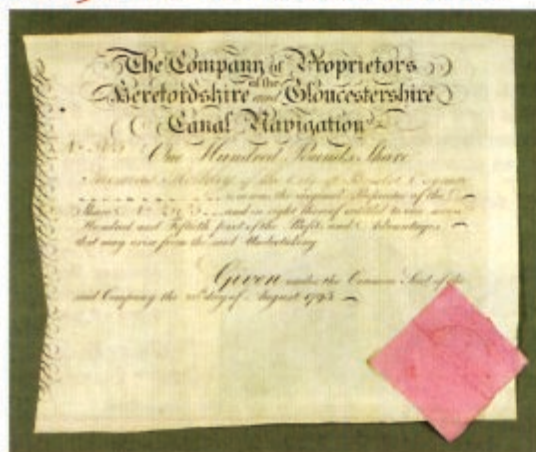 The Company of Proprietors
of the
Herefordshire and Gloucestershire
Canal Navigation
One Hundred Pounds Share
of the City of
is the original Proprietor of the
Share No and in right thereof entitled to one seven
Hundred and Fiftieth part of the Profits and Advantages
that may arise from the said Undertaking
Given under the Common Seal of the
said Company the day of August 1793